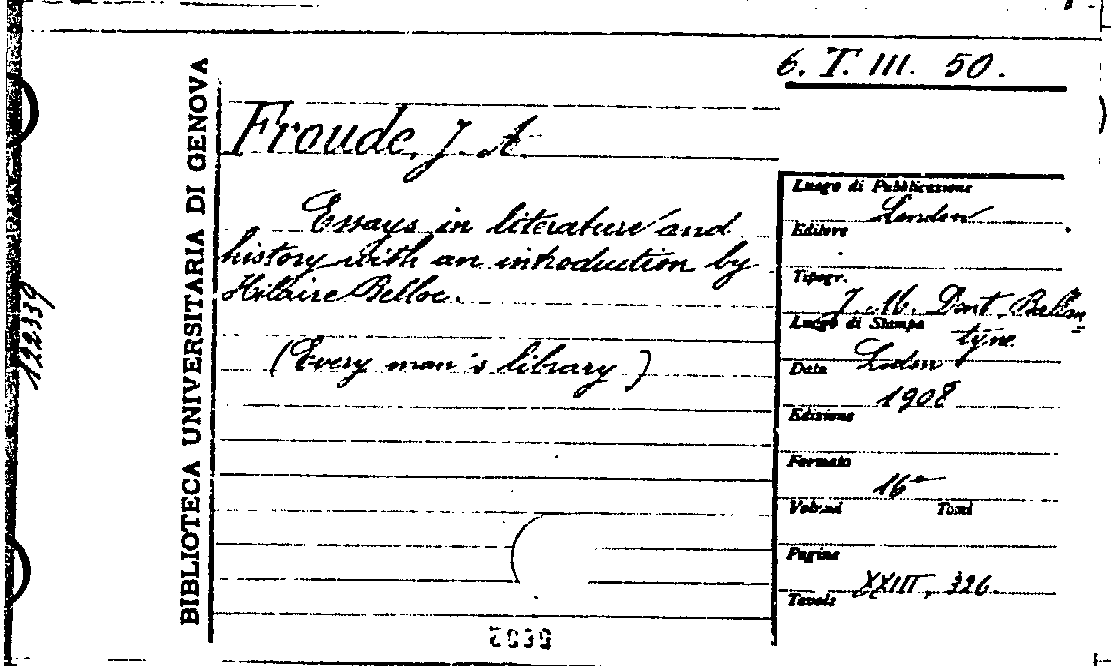 6. T. III. 50.
BIBLIOTECA UNIVERSITARIA DI GENOVA
Froude, J. A.
Essays in literature and
history with an introduction by
Hilaire Belloc.
(Every man's library)
Luogo di Pubblicazione
London
Editore
Tipogr.
J. M. Dent, Ballan
tyne
Luogo di Stampa
Lodon
Data
1908
Edizione
Formato
16°
Volumi Tomi
Pagine
XXIII, 326.
Tavole
192339